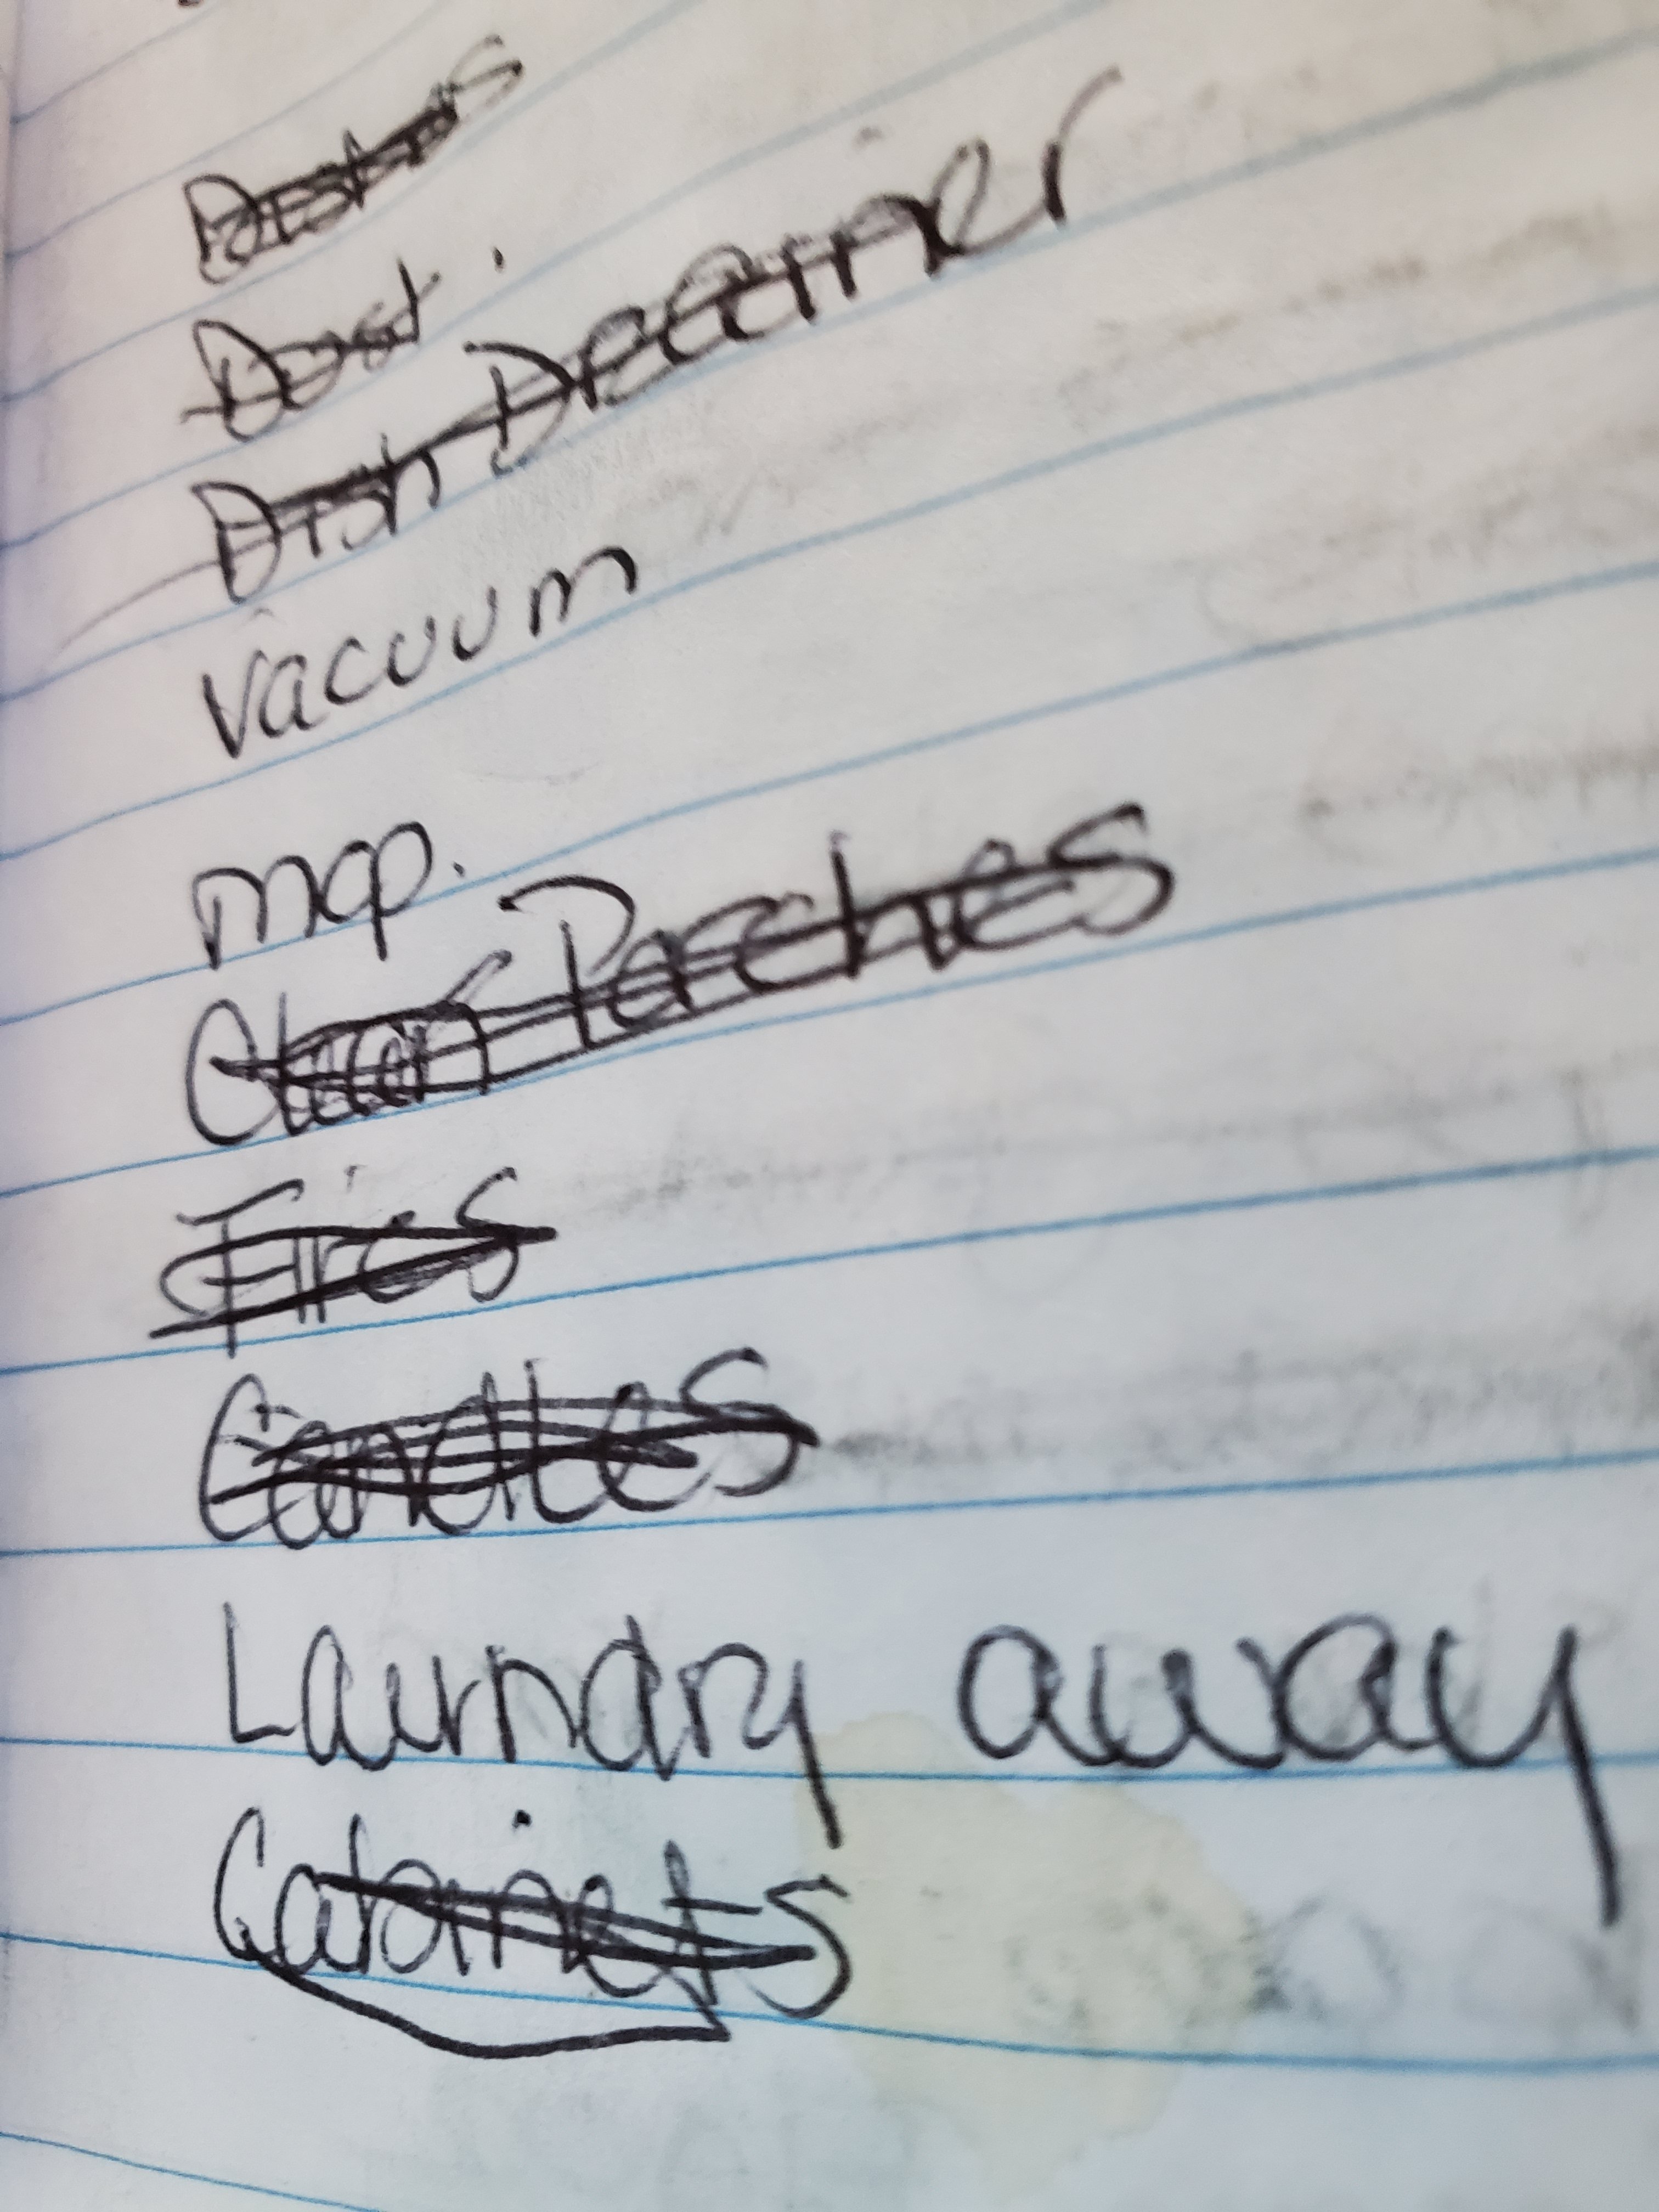 Dust.
Dish Drainer
Vacuum
mop.
Clean Porches
Fires
Candles
Laundry away
Cabinets